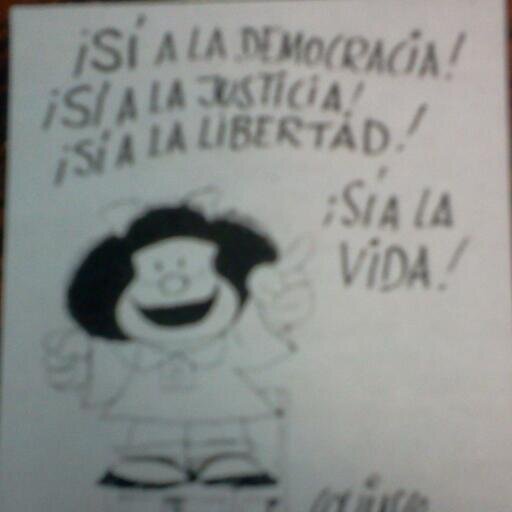 ¡SÍ A LA DEMOCRACIA!
¡SÍ A LA JUSTICIA!
¡SÍ A LA LIBERTAD!
¡SÍ A LA
VIDA!